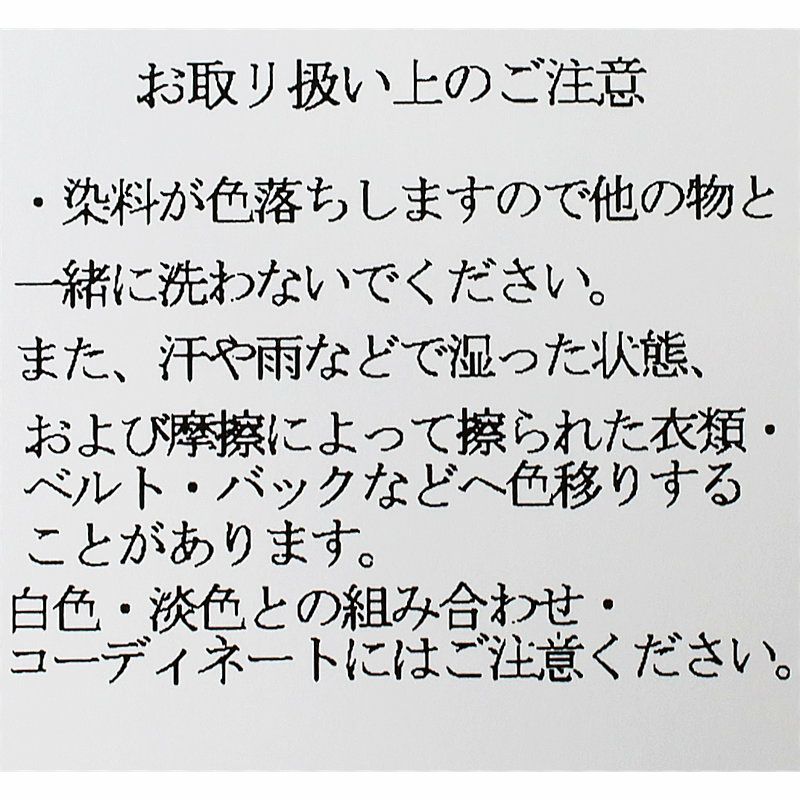 お取り扱い上のご注意
・染料が色落ちしますので他の物と
一緒に洗わないでください。
また、汗や雨などで湿った状態、
および摩擦によって擦られた衣類・
ベルト・バックなどへ色移りする
ことがあります。
白色・淡色との組み合わせ・
コーディネートにはご注意ください。